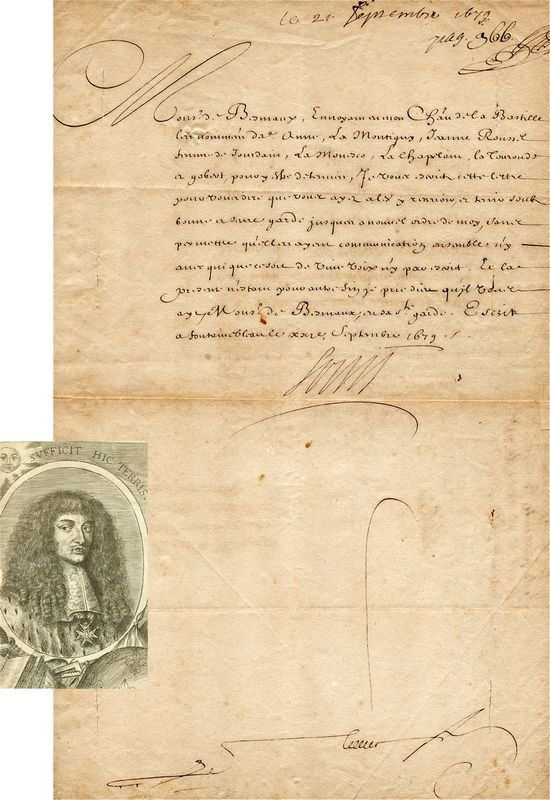 le 21 Septembre 1679
pag. 366
Monsr. de Besmaux, Envoyant en mon Chau. de la Bastille
les nommées dae. Anne, La Montigny, Jeanne Roussel
femme de Jourdain, La Monsco, La Chaplain, la
et gobert, pour y estre detenües, Je vous escrits cette lettre
pour vous dire que vous ayez a les y recevoir, et tenir soubs
bonne et seure garde jusques a nouvel ordre de moy, sans
permettre qu'elles ayent communication ensemble ny
avec qui que ce soit de vive voix ny par escrit. Et la
presente n'estant pour autre fin je prie dieu qu'il vous
ayt Monsr. de Besmaux, en sa ste. garde. Escrit
a fontainebleau le Septembre 1679.
Louis
SVFFICIT HIC TERRIS.